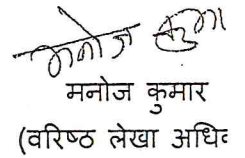 मनोज कुमार
मनोज कुमार
(वरिष्ठ लेखा अधि